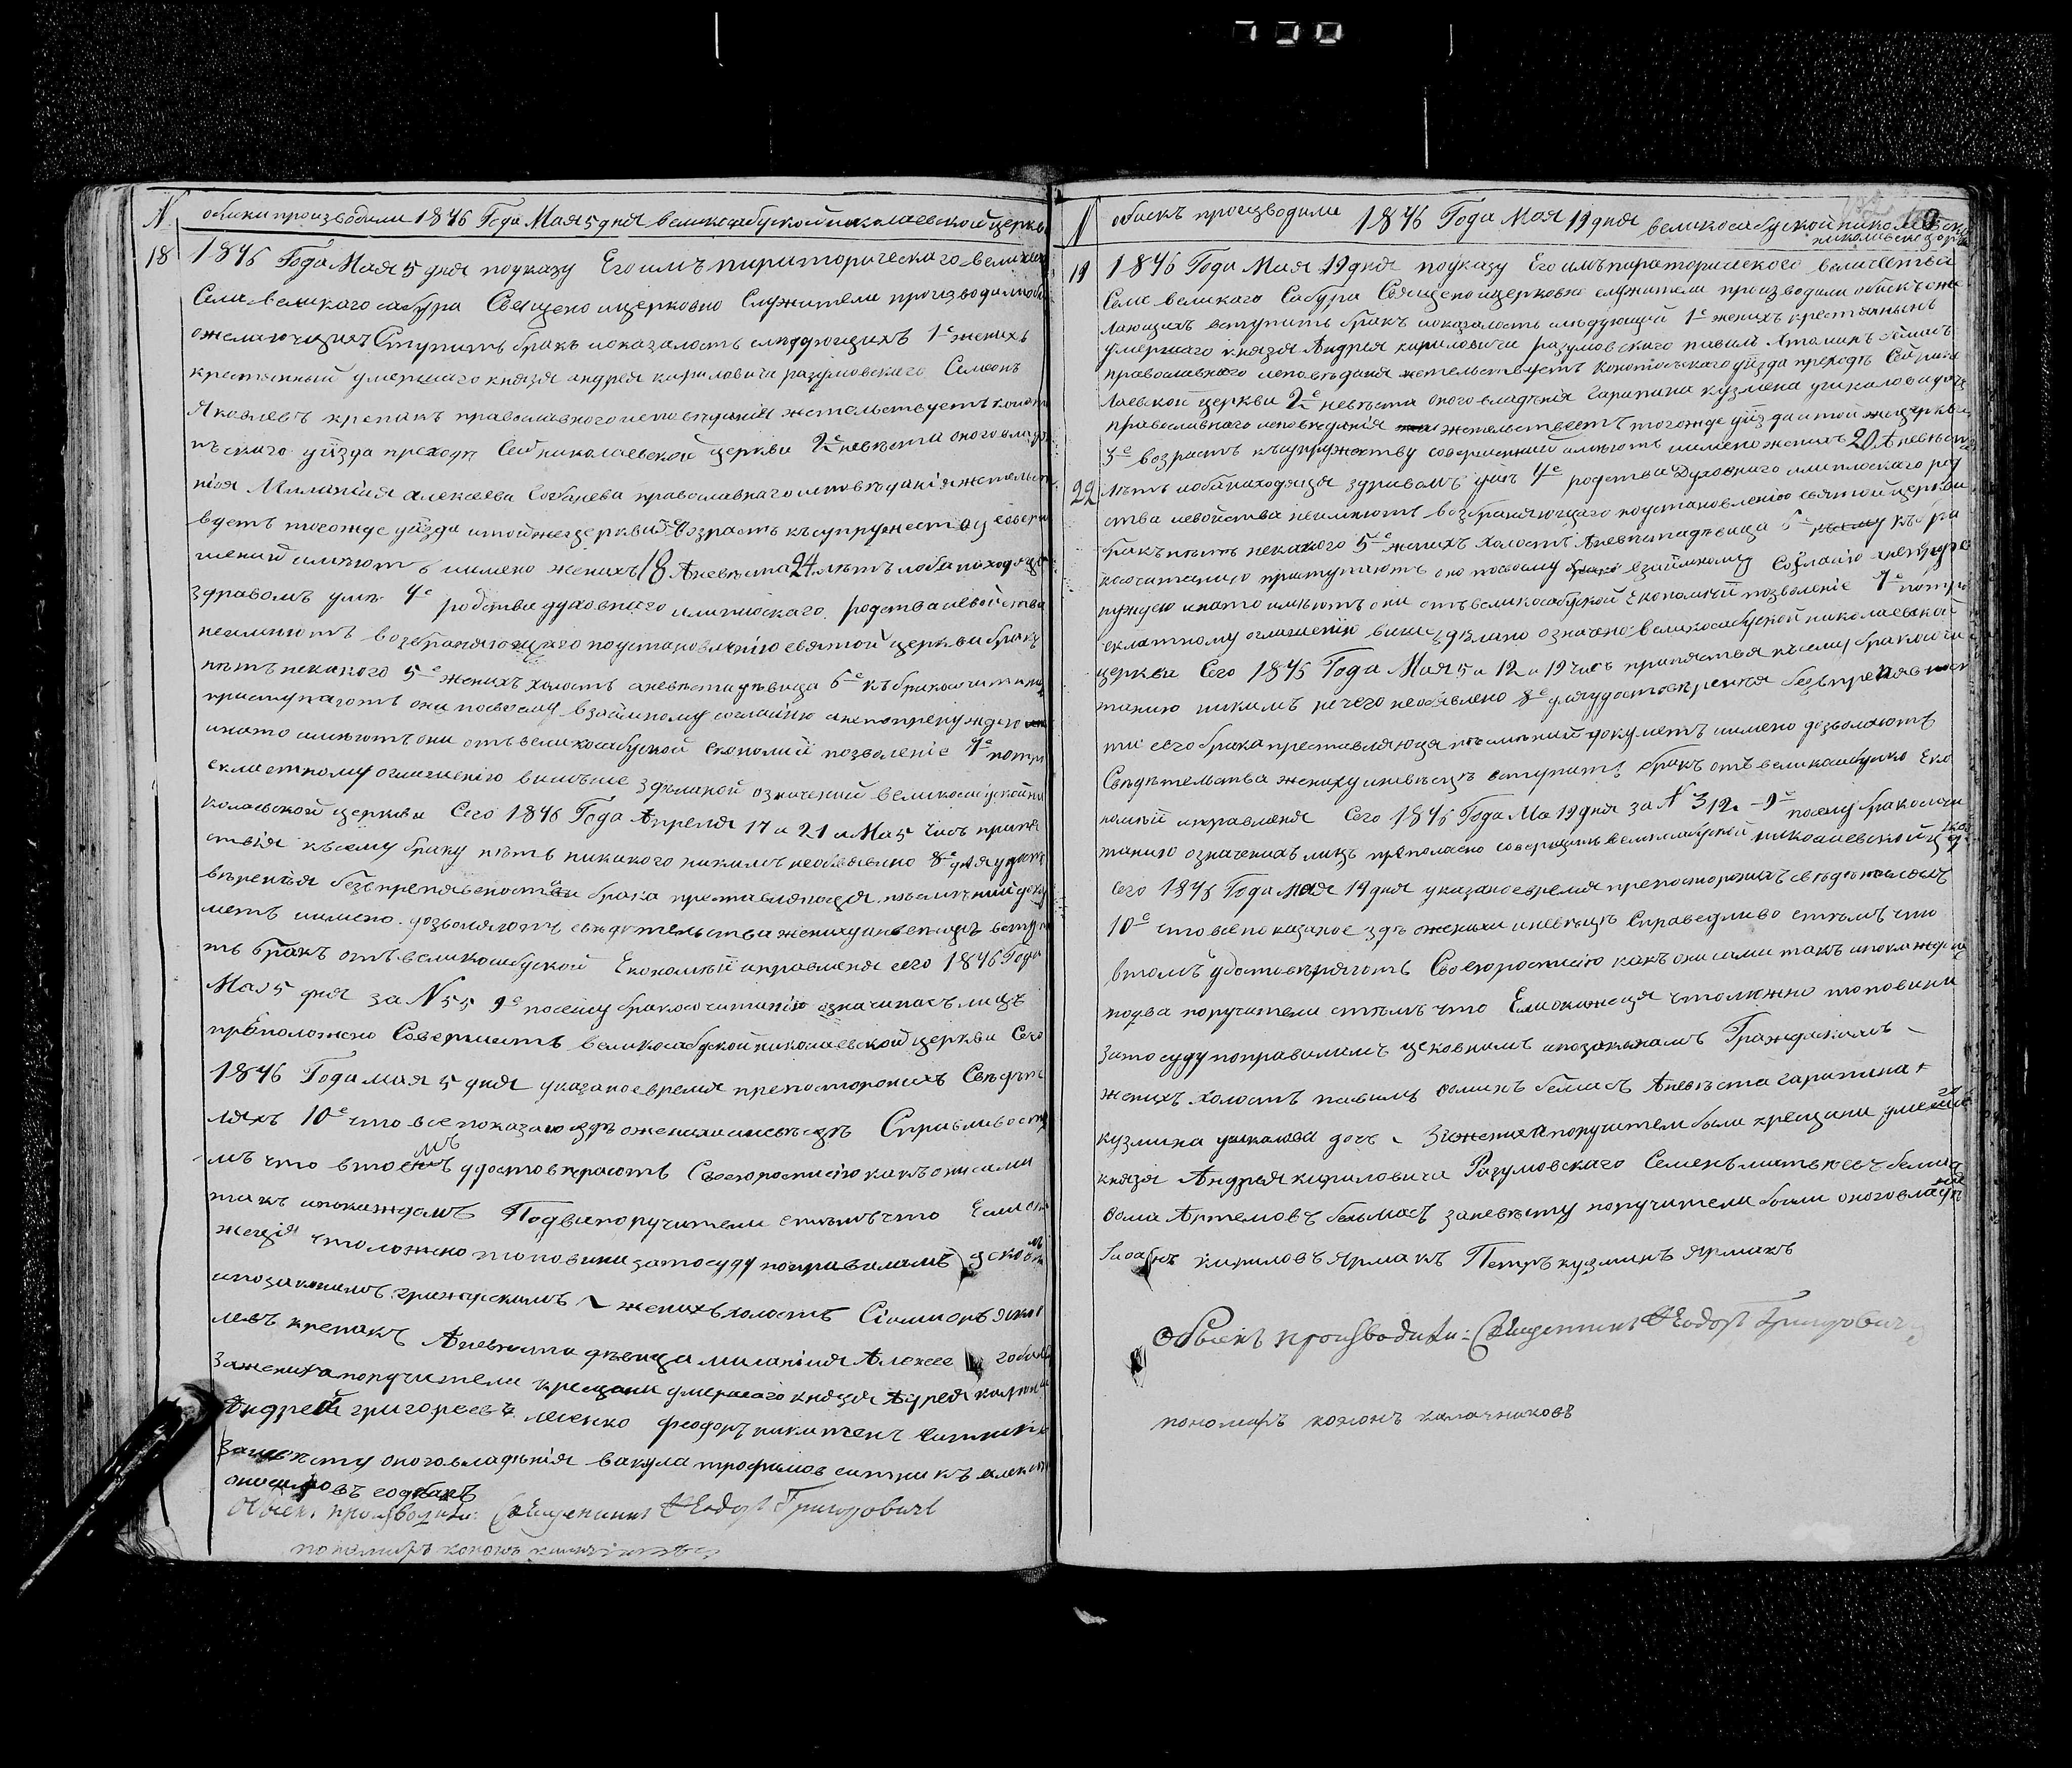 N обыски производили 1846 Года Мая 5 дня великосабуской николаевской церкви
18 1846 Года Мая 5 дня поуказу Его имъпираторическаго величе
Села великаго самбура Свещено ицерковно Служители производили
ожелающихъ Ступить бракъ иоказалость следующихъ 1е женихъ
крестянный умершаго князя андрея кириловича разумовскаго Симеонъ
Яковлевъ крепакъ православного исповеданія жетельствуетъ коното
пъскаго уїзда преходъ Сей николаевской церкви 2е невѣста оноговладѣ
нія Миланкія алексеева Собачева православнаго исповѣданія жетельст
вуетъ тогожде уїзда итойжецеркви 3 Возрастъ късупружеству совер
шений имѣютъ имено женихъ 18 Аневѣста 24 лѣтъ иоба находяця
здравомъ умѣ 4е родства духовнаго илиплоскаго родства исвойства
неимѣютъ возбраняющаго поустановлѣнію святой церкви браку
нѣтъ некакого 5е женихъ холостъ аневѣста дѣвица 6е къбракосочитанію
приступаютъ они посвоему взаїмному согласію анепопренуждению
инато имѣютъ они отъвеликосабуской Економії позволеніе 7е потри
еклатному оглашенію здѣланой означений великосабуской ни
колаевской церкви Сего 1846 Года Апреля 17 и 21 и Ма 5 чисъ препят
ствія късему браку нѣтъ никакого никимъ необявлено 8е для удосто
вѣренїя безъпрепявеност брака преставляюця писмѣний доку
метъ имено дозволяютъ свидетельства жениху иневѣсцѣ всту
пть бракъ отъ великосабуской Економїй иправленя сего 1846 Года
Мая 5 дня за N 55 9е посему бракосочитанію означинасъ лицъ
преположено Совершитъ великосабуской николаевской церкви Сего
1846 Года мая 5 дня указаноевремя препосторонихъ Свѣдѣте
ляхъ 10е что все показаное здѣ оженихе иневѣсцѣ Справливо
мъ что втомъ удостовѣраютъ Своеюросписію какъ они сами
такъ ипокаждомъ Подвапоручители стѣмъ что Ели ок
жеция чтоложно топовини затосуду поправиламъ цековн
ипозаконамъ гражданскимъ женихъ холостъ Симионъ Яков
левъ крепакъ Аневѣста дѣвица миланкия Алексее
Зажениха поручители крещани умершаго князя Адрея
Андрей григорьевъ Феодоръ никитенъ
Заневѣсту оноговладѣнія вакула трофимов ситникъ
Обыскъ производили: Священникъ Феодоръ Григоровичъ
пономаръ кононъ калачниковъ
N обыскъ производили 1846 Года Мая 19 дня великосабуской николаевской
19 1846 Года Мая 19 дня поуказу Его имъпираторическаго величества
Села великаго Сабура Священо ицерковно служители производили обыскъ оже
лающихъ вступить бракъ иоказалость следующий 1е женихъ крестянынъ
умершаго князя Андрея кириловича разумовскаго павилъ белмасъ
православного исповѣданя жетельствуетъ конотопъского уїзда преходъ Сей нико
лаевской церкви 2е невѣста оноговладѣнія Гарапина кузмена дочъ
православнаго исповѣданія жетельствуетъ тогожде уїзда итой жецеркви
3е возрастъ късупружеству совершений имѣютъ имено женихъ 20 Аневѣста
22 лѣтъ иобанаходяця здравомъ умѣ 4е родства Духовнаго илиплоскаго род
ства исвойства неимѣютъ возбраняющаго поустановленію святой церкви
бракъ нѣтъ некакого 5е женихъ холостъ Аневѣста дѣвица 6е къбра
косочитанию приступаютъ они посвоему взаїмному Согласію непопре
нуждению инато имѣютъ они отъвеликосабуской Економїй позволеніе 7е потри
еклатному оглашенію здѣлано означено великосабуской николаевской
церкви Сего 1846 Года Мая 5 и 12 и 19 чисъ препятствья къ сему бракосочи
танию никимъ нечего необявлено 8е дляудостовѣренѣя безъпрепявност
ти сего брака преставляюця писмѣний документъ имено дозволяютъ
Свѣдѣтельства жениху иневѣсцѣ вступить бракъ отъ великосабуско Еко
номїй иправленя Сего 1846 Года Ма 19 дня за N 312 9е посему бракосочи
танию означенихъ лицъ преположено совершить великосабуской николаевской
сего 1846 Года мая 19 дня указаноевремя препосторонихъ свѣдѣтеляхъ
10е что все показаное здѣ оженихе иневѣсцѣ Справедливо стѣмъ что
втомъ удостовѣряютъ Своеюросписію какъ они сами такъ ипокаждомъ
подва поручители стѣмъ что Ели окажеця чтоложно то повини
Затосуду поправиламъ цековнимъ ипозаконамъ Гражданскимъ
женихъ холостъ павилъ фоминъ белмасъ Аневѣста гарапина
кузмина дочъ Зажениха поручители были крещани умершаго
князя Андрея кириловича Разумовскаго Семенъ матвѣевъ белмасъ
Фома Артемовъ белмасъ заневѣсту поручители были оноговладѣ
кириловъ Ярмакъ Петръ кузминъ Ярмакъ
Обыскъ производили: Священникъ Феодоръ Григоровичъ
пономаръ кононъ калачниковъ